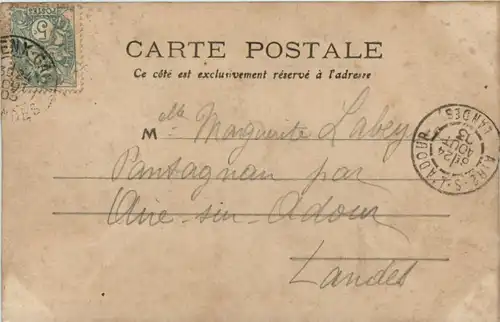 CARTE POSTALE
Ce côté est exclusivement réservé à l'adresse
Melle Marguerite Labey
Pantagnan par
Aire-sur-Adour
Landes
5
POSTES
AIRE-S-L'ADOUR
LANDES
24
AOUT
03